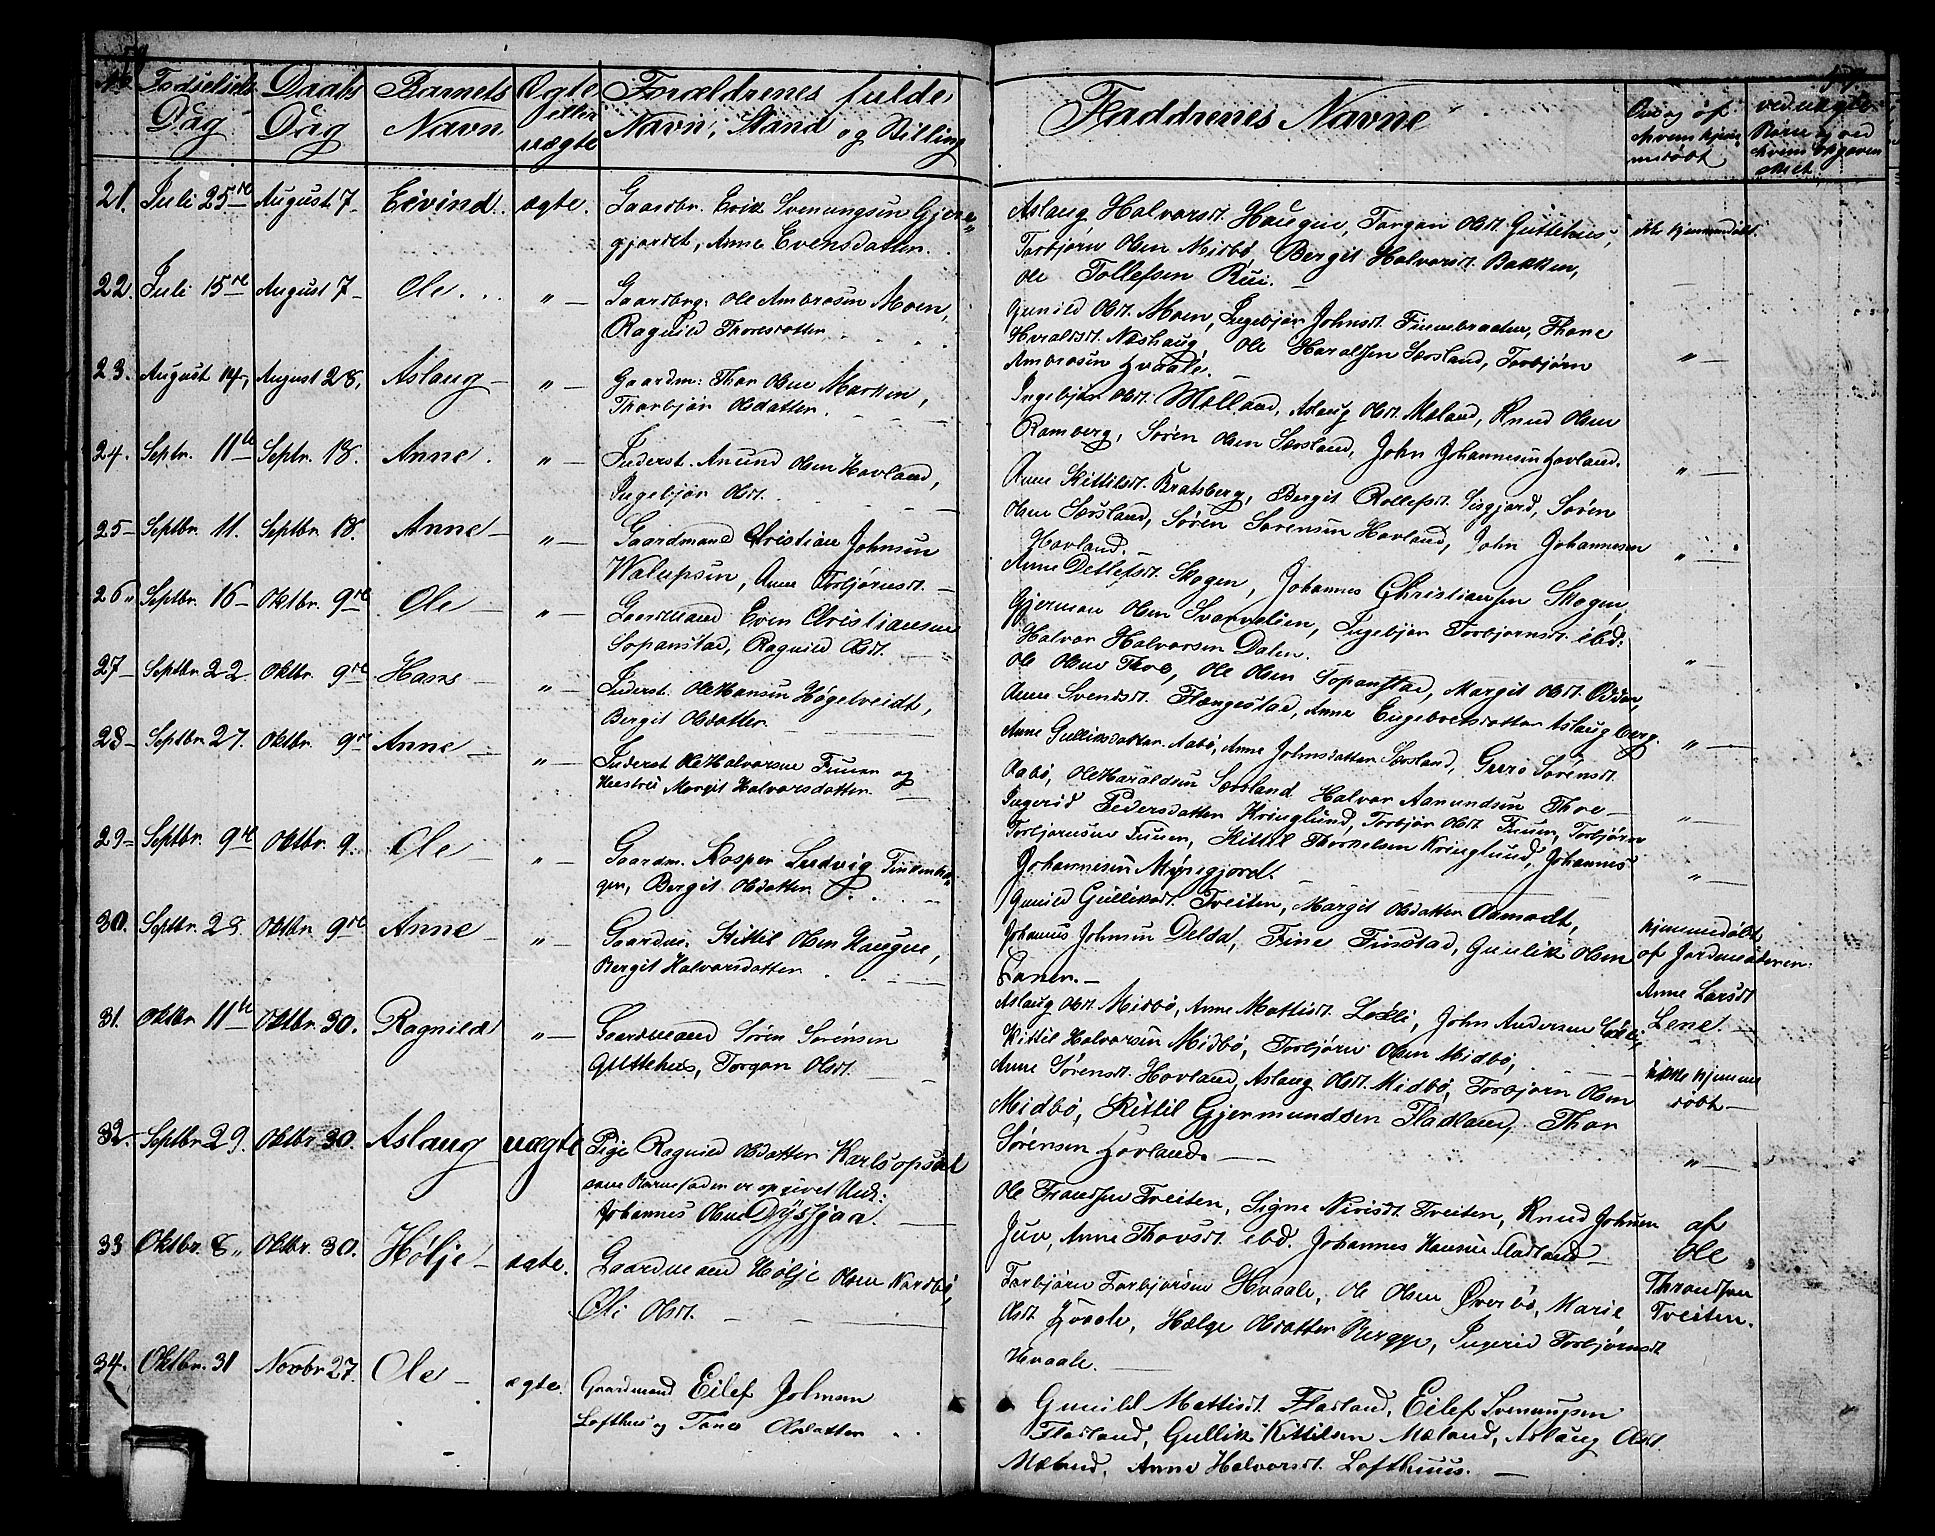 59
59.
No
Fødselsels Dag
Daabs Dag
Barnets Navn
Ægte eller uægte
Forældrenes fulde Navn, Stand og Stilling
Faddrenes Navne
Om og af hvem hjemmedøbt
ved uægte Børn
21. Juli 25de August 7 - Eivind. ægte. Gaardbr. Erik Svenungsen
gjordet, Anne Evensdatter.
Aslaug Halvorsdt. Haugen, Torgon Olsdt. Guttehus,
Torbjørn Olsen Midbø, Bergit Halvorsdt. Bakken,
Ole Tollefsen Rui. -
ikke hjemmedøbt.
22. Juli 15de August 7 - Ole. " - Gaardbrg. Ole Ambrosen Moen,
Ragnild Thoresdatter
Gunild Olsdt. Moen, Ingebjør Johnsdt. Finnebraaten, Thone
Haraldsdt. Næshaug, Ole Haralsen Særsland, Torbjørn
Ambrosen Hvaale.
" -
23. August 14, August 28, Aslaug - " - Gaardm: Thor Olsen Marken,
Thorbjør Olsdatter.
Ingebjør Olsdt. Mælland, Aslaug Olsdt. Mæland, Knud Olsen
Ramberg, Søren Olsen Særsland, John Johannesen Hovland.
" -
24. Septr. 11te Septr. 18. Anne. " - Inderst. Anund Olsen Hovland,
Ingebjør Olsdt.
Anne Kittilsdt. Bratsberg, Bergit Rollefsdt. Sisgjord, Søren
Olsen Særsland, Søren Sørensen Hovland, John Johannesen
Hovland.
" -
25 - Septbr. 11. Septbr. 18. Anne - " - Gaardmand Christian Johnsen
Walupsen, Anne Torbjørnsdt. -
Anne Detlefsdt. Skogen, Johannes Christiansen Skogen,
Gjermon Olsen Svarvelien, Ingebjør Torbjørnsdt. ibd:
Halvor Halvorsen Dalen.
" -
26 " Septbr. 16 - Oktbr. 9de Ole - " - Gaardmand Even Christiansen
Sopanstad, Ragnild Olsdt. -
Ole Olsen Thoe, Ole Olsen Sopanstad, Margit Olsdt. Odden
Anne Svendsdt. Flængestad, Anne Engebretsdatter Aslaugberg.
" -
27 - Septbr. 22. Oktbr. 9de Hans - " - Inderst. Ole Hansen Høgelveidt,
Bergit Olsdatter
Anne Gulliksdatter Aabø, Anne Johnsdatter Særsland, Guro Sørensdt.
Aabø, Ole Haraldsen Særsland Halvor Aamundsen Thoe -
" -
28 - Septbr. 27. Oktbr. 9de Anne - " - Inderst Ole Halvorsen Tuuen og
Hustru Margit Halvorsdatter.
Ingerid Pedersdatter Kringlund, Torbjør Olsdt. Tuuen, Torbjørn
Torbjørnsen Tuuen, Kittil Thorkelsen Kringlund, Johannes
Johannesen Myregjord.
" -
29 - Septbr. 9de Oktbr. 9. Ole - " - Gaardm. Kasper Ludvig
Bergit Olsdatter
Gunild Gulliksdt. Tveiten, Margit Olsdatter Aamodt,
Johannes Johnsen Delda, Trine Finstad, Gunlik Olsen
30. Septbr. 28. Oktbr. 9de Anne - " - Gaardm. Kittil Olsen Haugen,
Bergit Halvorsdatter
Aslaug Olsdt. Midbø, Anne Mattisdt. Løkli, John Andersen
Kittil Halvorsen Midbø, Torbjørn Olsen Midbø,
hjemmedøbt
af Jordmoderen
Anne Larsdt
Lene. -
31. Oktbr. 11te Oktbr. 30. Ragnild " - Gaardmand Søren Sørensen
Guttehus, Torgon Olsdt.
Anne Sørensdt. Hovland, Aslaug Olsdt. Midbø, Torbjørn Olsen
Midbø, Kittil Gjermundsen Fladland, Thor
Sørensen Hovland. -
ikke hjemme
døbt -
32. Septbr. 29. Oktbr. 30. Aslaug uægte Pige Ragnild Olsdatter
som Barnefader er opgivet Unk:
Johannes Olsen
Ole Trondsen Tveiten, Signe Nirisdt. Tveiten, Knud Johnsen
Juv, Anne Thovsdt. ibd. Johannes Hansen Fladland -
" -
33 Oktbr. 8 " Oktbr. 30. Hølje - ægte. Gaardmand Hølje Olsen Nordbø,
Oli Olsdt. -
Torbjørn Torbjørsen Hvaale, Ole Olsen Øverbø, Marie
Olsdt Hvaale, Hælge Olsdatter Bergge, Ingerid Torbjørnsdt
Hvaale.
af
Ole
Throndsen
Tveiten.
34. Oktbr. 31 Novbr 27. Ole - ægte. Gaardmand Eilef Johnsen
Lofthus og Tone Olsdatter
Gunild Mattisdt. Fladland, Eilef Svenungsen
Fladland, Gullik Kittilsen Mæland, Aslaug Olsdt.
Mæland, Anne Halvorsdt. Lofthuus. -